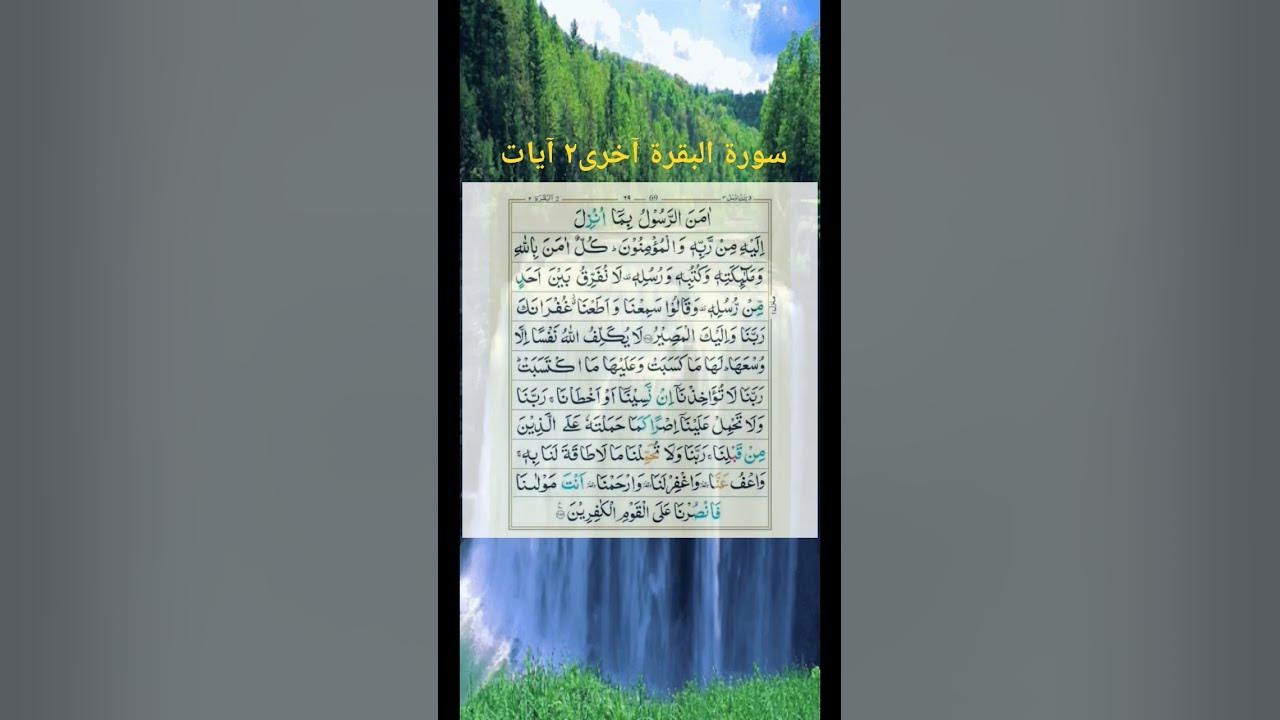 سورة البقرة آخری۲ آیات
٦٩ 69
اٰمَنَ الرَّسُوْلُ بِمَاۤ اُنْزِلَ
اِلَيْهِ مِنْ رَّبِّهٖ وَالْمُؤْمِنُوْنَ ؕ كُلٌّ اٰمَنَ بِاللّٰهِ
وَمَلٰٓئِكَتِهٖ وَكُتُبِهٖ وَرُسُلِهٖ ۫ لَا نُفَرِّقُ بَيْنَ اَحَدٍ
مِّنْ رُّسُلِهٖ ۫ وَقَالُوْا سَمِعْنَا وَاَطَعْنَا ۫ غُفْرَانَكَ
رَبَّنَا وَاِلَيْكَ الْمَصِيْرُ ۝ لَا يُكَلِّفُ اللّٰهُ نَفْسًا اِلَّا
وُسْعَهَا ؕ لَهَا مَا كَسَبَتْ وَعَلَيْهَا مَا اكْتَسَبَتْ ؕ
رَبَّنَا لَا تُؤَاخِذْنَاۤ اِنْ نَّسِيْنَاۤ اَوْ اَخْطَاْنَا ۚ رَبَّنَا
وَلَا تَحْمِلْ عَلَيْنَاۤ اِصْرًا كَمَا حَمَلْتَهٗ عَلَى الَّذِيْنَ
مِنْ قَبْلِنَا ۚ رَبَّنَا وَلَا تُحَمِّلْنَا مَا لَا طَاقَةَ لَنَا بِهٖ ۚ
وَاعْفُ عَنَّا ۥ وَاغْفِرْ لَنَا ۥ وَارْحَمْنَا ۥ اَنْتَ مَوْلٰىنَا
فَانْصُرْنَا عَلَى الْقَوْمِ الْكٰفِرِيْنَ ۝